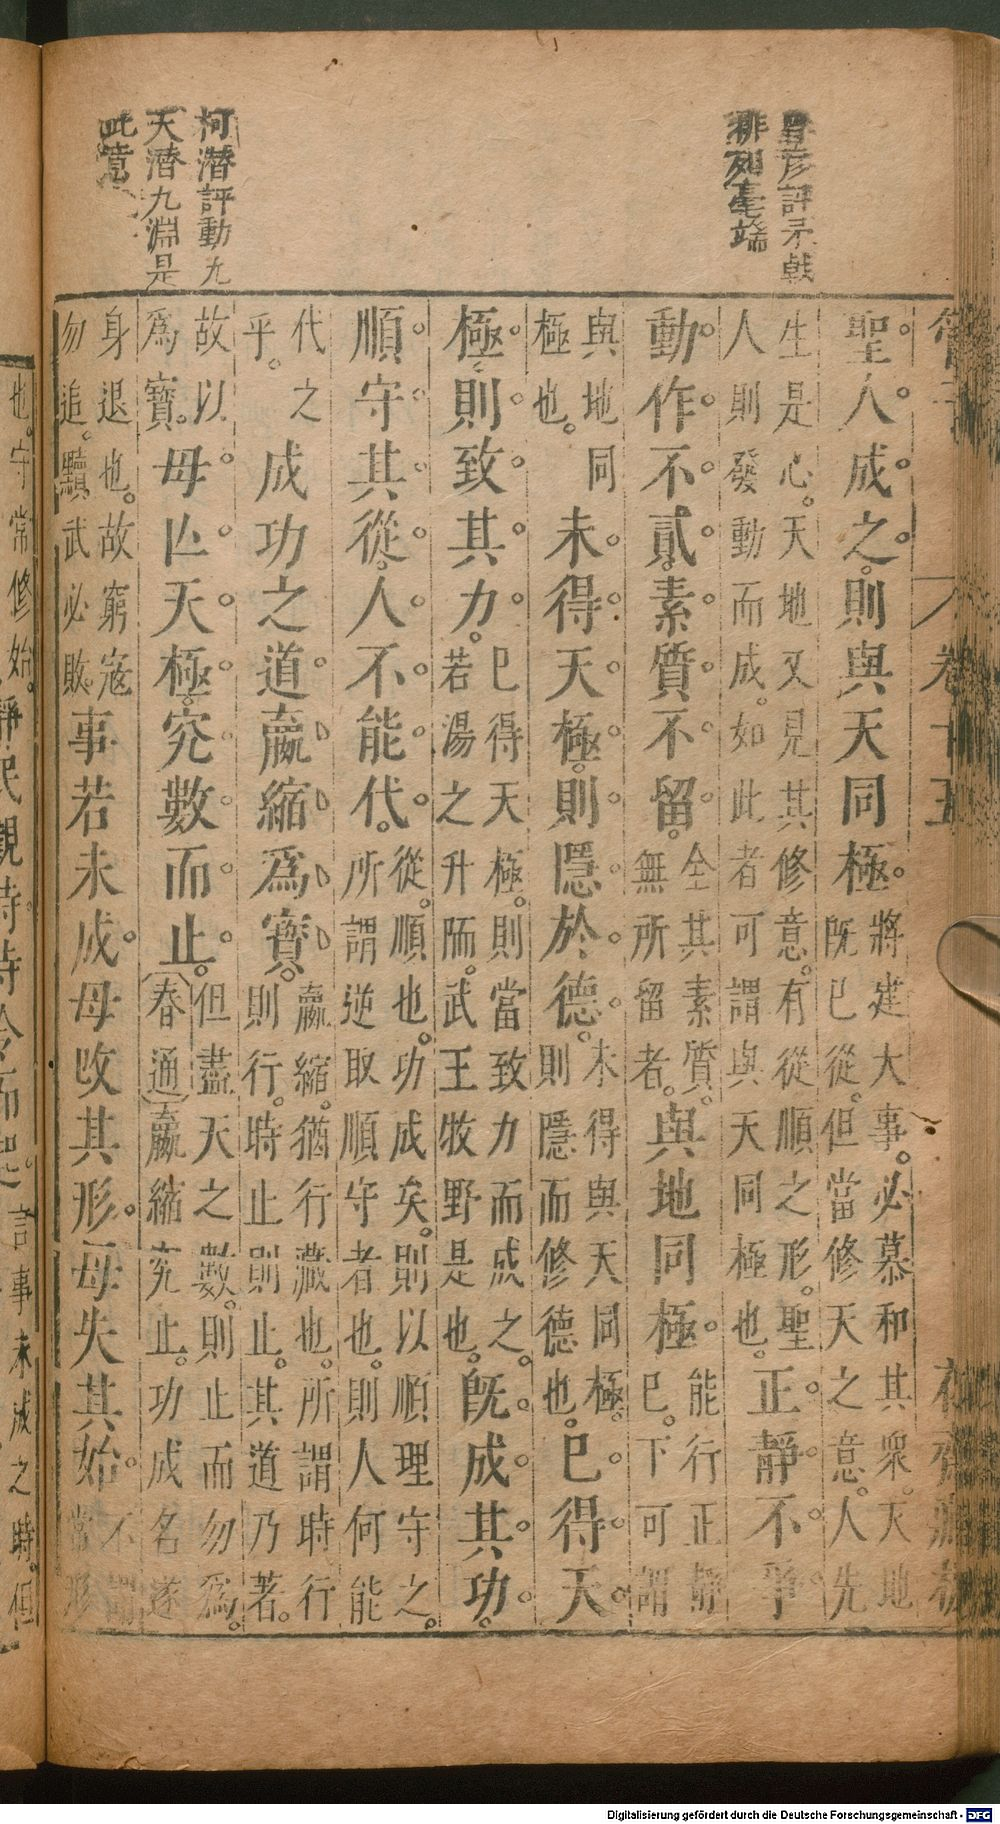 評矛戟
排列毫端
柯潛評動九
天潛九淵是
此意
管子
卷十五
聖人成之。則與天同極。將建大事。必慕和其衆。天地
既已從。但當修天之意。人先
生是心。天地又見其修意。有從順之形。聖
人則發動而成。如此者可謂與天同極也。正靜不爭
動作不貳。素質不留。全其素質。
無所留者。與地同極。能行正靜
已下可謂
與地同
極也。未得天極。則隱於德。未得與天同極。
則隱而修德也。已得天
極。則致其力。已得天極。則當致力而成之。
若湯之升陑。武王牧野是也。既成其功。
順守其從。人不能代。從。順也。功成矣。則以順理守之。
所謂逆取順守者也。則人何能
代之
乎。成功之道。嬴縮爲寶。嬴縮。猶行藏也。所謂時行
則行。時止則止。其道乃著。
故以
爲寶。毋亡天極。究數而止。但盡天之數。則止而勿爲。
春通嬴縮究止。功成名遂
身退也。故窮寇
勿追。黷武必敗。事若未成。毋攺其形。毋失其始。不
常形
也。守常修始。靜民觀時。待令而起。言事未成之時。但
Digitalisierung gefördert durch die Deutsche Forschungsgemeinschaft - DFG